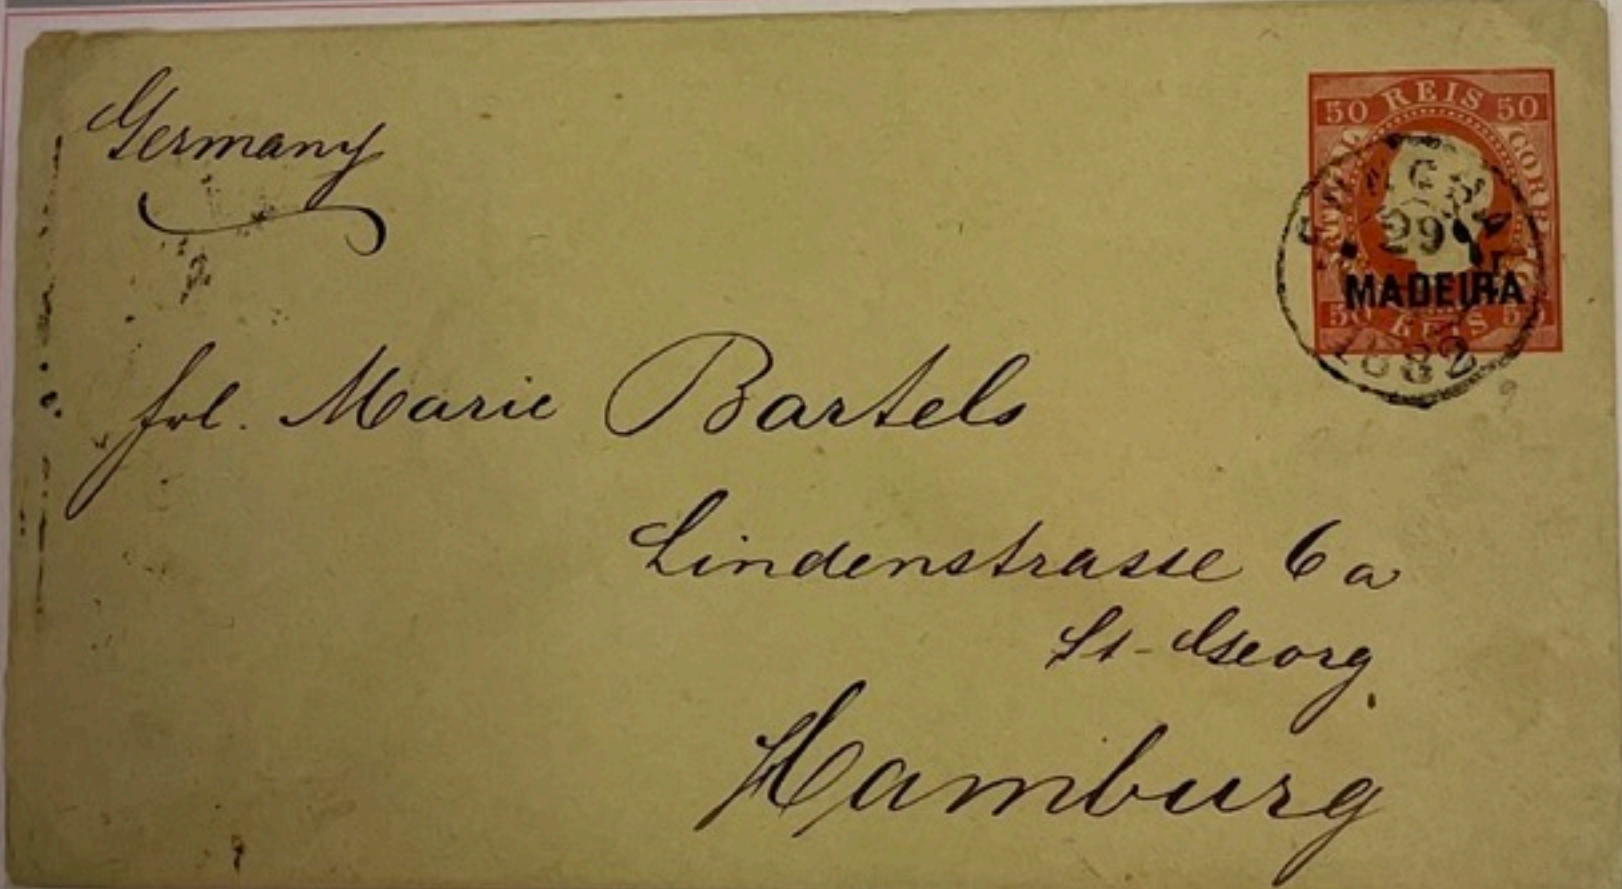 Germany
50 REIS 50
29
MADEIRA
50 REIS 50
1882
frl. Marie Bartels
Lindenstrasse 6a
St-Georg
Hamburg